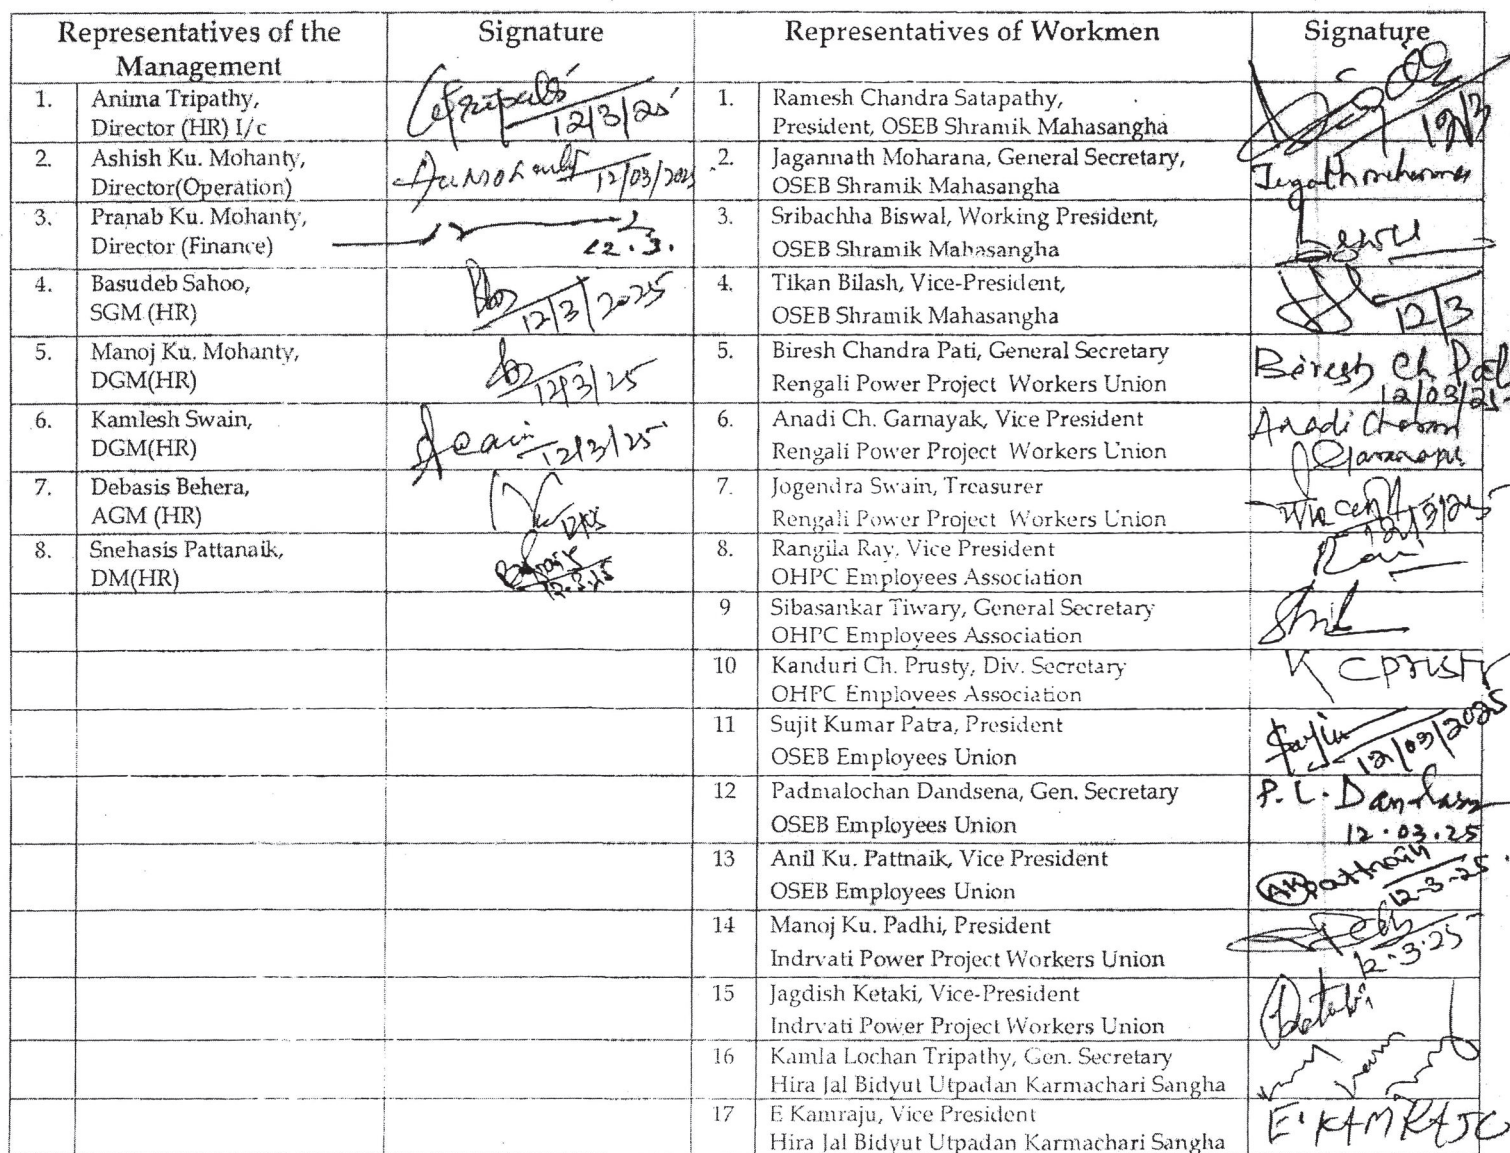 Representatives of the Management
Signature
Representatives of Workmen
Signature
1. Anima Tripathy,
Director (HR) I/c
12/3/25
1. Ramesh Chandra Satapathy,
President, OSEB Shramik Mahasangha
12/3
2. Ashish Ku. Mohanty,
Director(Operation)
12/03/2025
2. Jagannath Moharana, General Secretary,
OSEB Shramik Mahasangha
3. Pranab Ku. Mohanty,
Director (Finance)
12.3.
3. Sribachha Biswal, Working President,
OSEB Shramik Mahasangha
4. Basudeb Sahoo,
SGM (HR)
12/3/2025
4. Tikan Bilash, Vice-President,
OSEB Shramik Mahasangha
12/3
5. Manoj Ku. Mohanty,
DGM(HR)
12/3/25
5. Biresh Chandra Pati, General Secretary
Rengali Power Project Workers Union
Biresh Ch. Pati
12/03/25
6. Kamlesh Swain,
DGM(HR)
12/3/25
6. Anadi Ch. Garnayak, Vice President
Rengali Power Project Workers Union
Anadi Charan
7. Debasis Behera,
AGM (HR)
7. Jogendra Swain, Treasurer
Rengali Power Project Workers Union
12/3/25
8. Snehasis Pattanaik,
DM(HR)
12.3.25
8. Rangila Ray, Vice President
OHPC Employees Association
9 Sibasankar Tiwary, General Secretary
OHPC Employees Association
10 Kanduri Ch. Prusty, Div. Secretary
OHPC Employees Association
K C Prusty
11 Sujit Kumar Patra, President
OSEB Employees Union
12/03/2025
12 Padmalochan Dandsena, Gen. Secretary
OSEB Employees Union
P. L. Dandsena
12.03.25
13 Anil Ku. Pattnaik, Vice President
OSEB Employees Union
AK Pattnaik
12-3-25
14 Manoj Ku. Padhi, President
Indrvati Power Project Workers Union
12.3.25
15 Jagdish Ketaki, Vice-President
Indrvati Power Project Workers Union
16 Kamla Lochan Tripathy, Gen. Secretary
Hira Jal Bidyut Utpadan Karmachari Sangha
17 E Kamraju, Vice President
Hira Jal Bidyut Utpadan Karmachari Sangha
E. KAMRAJU